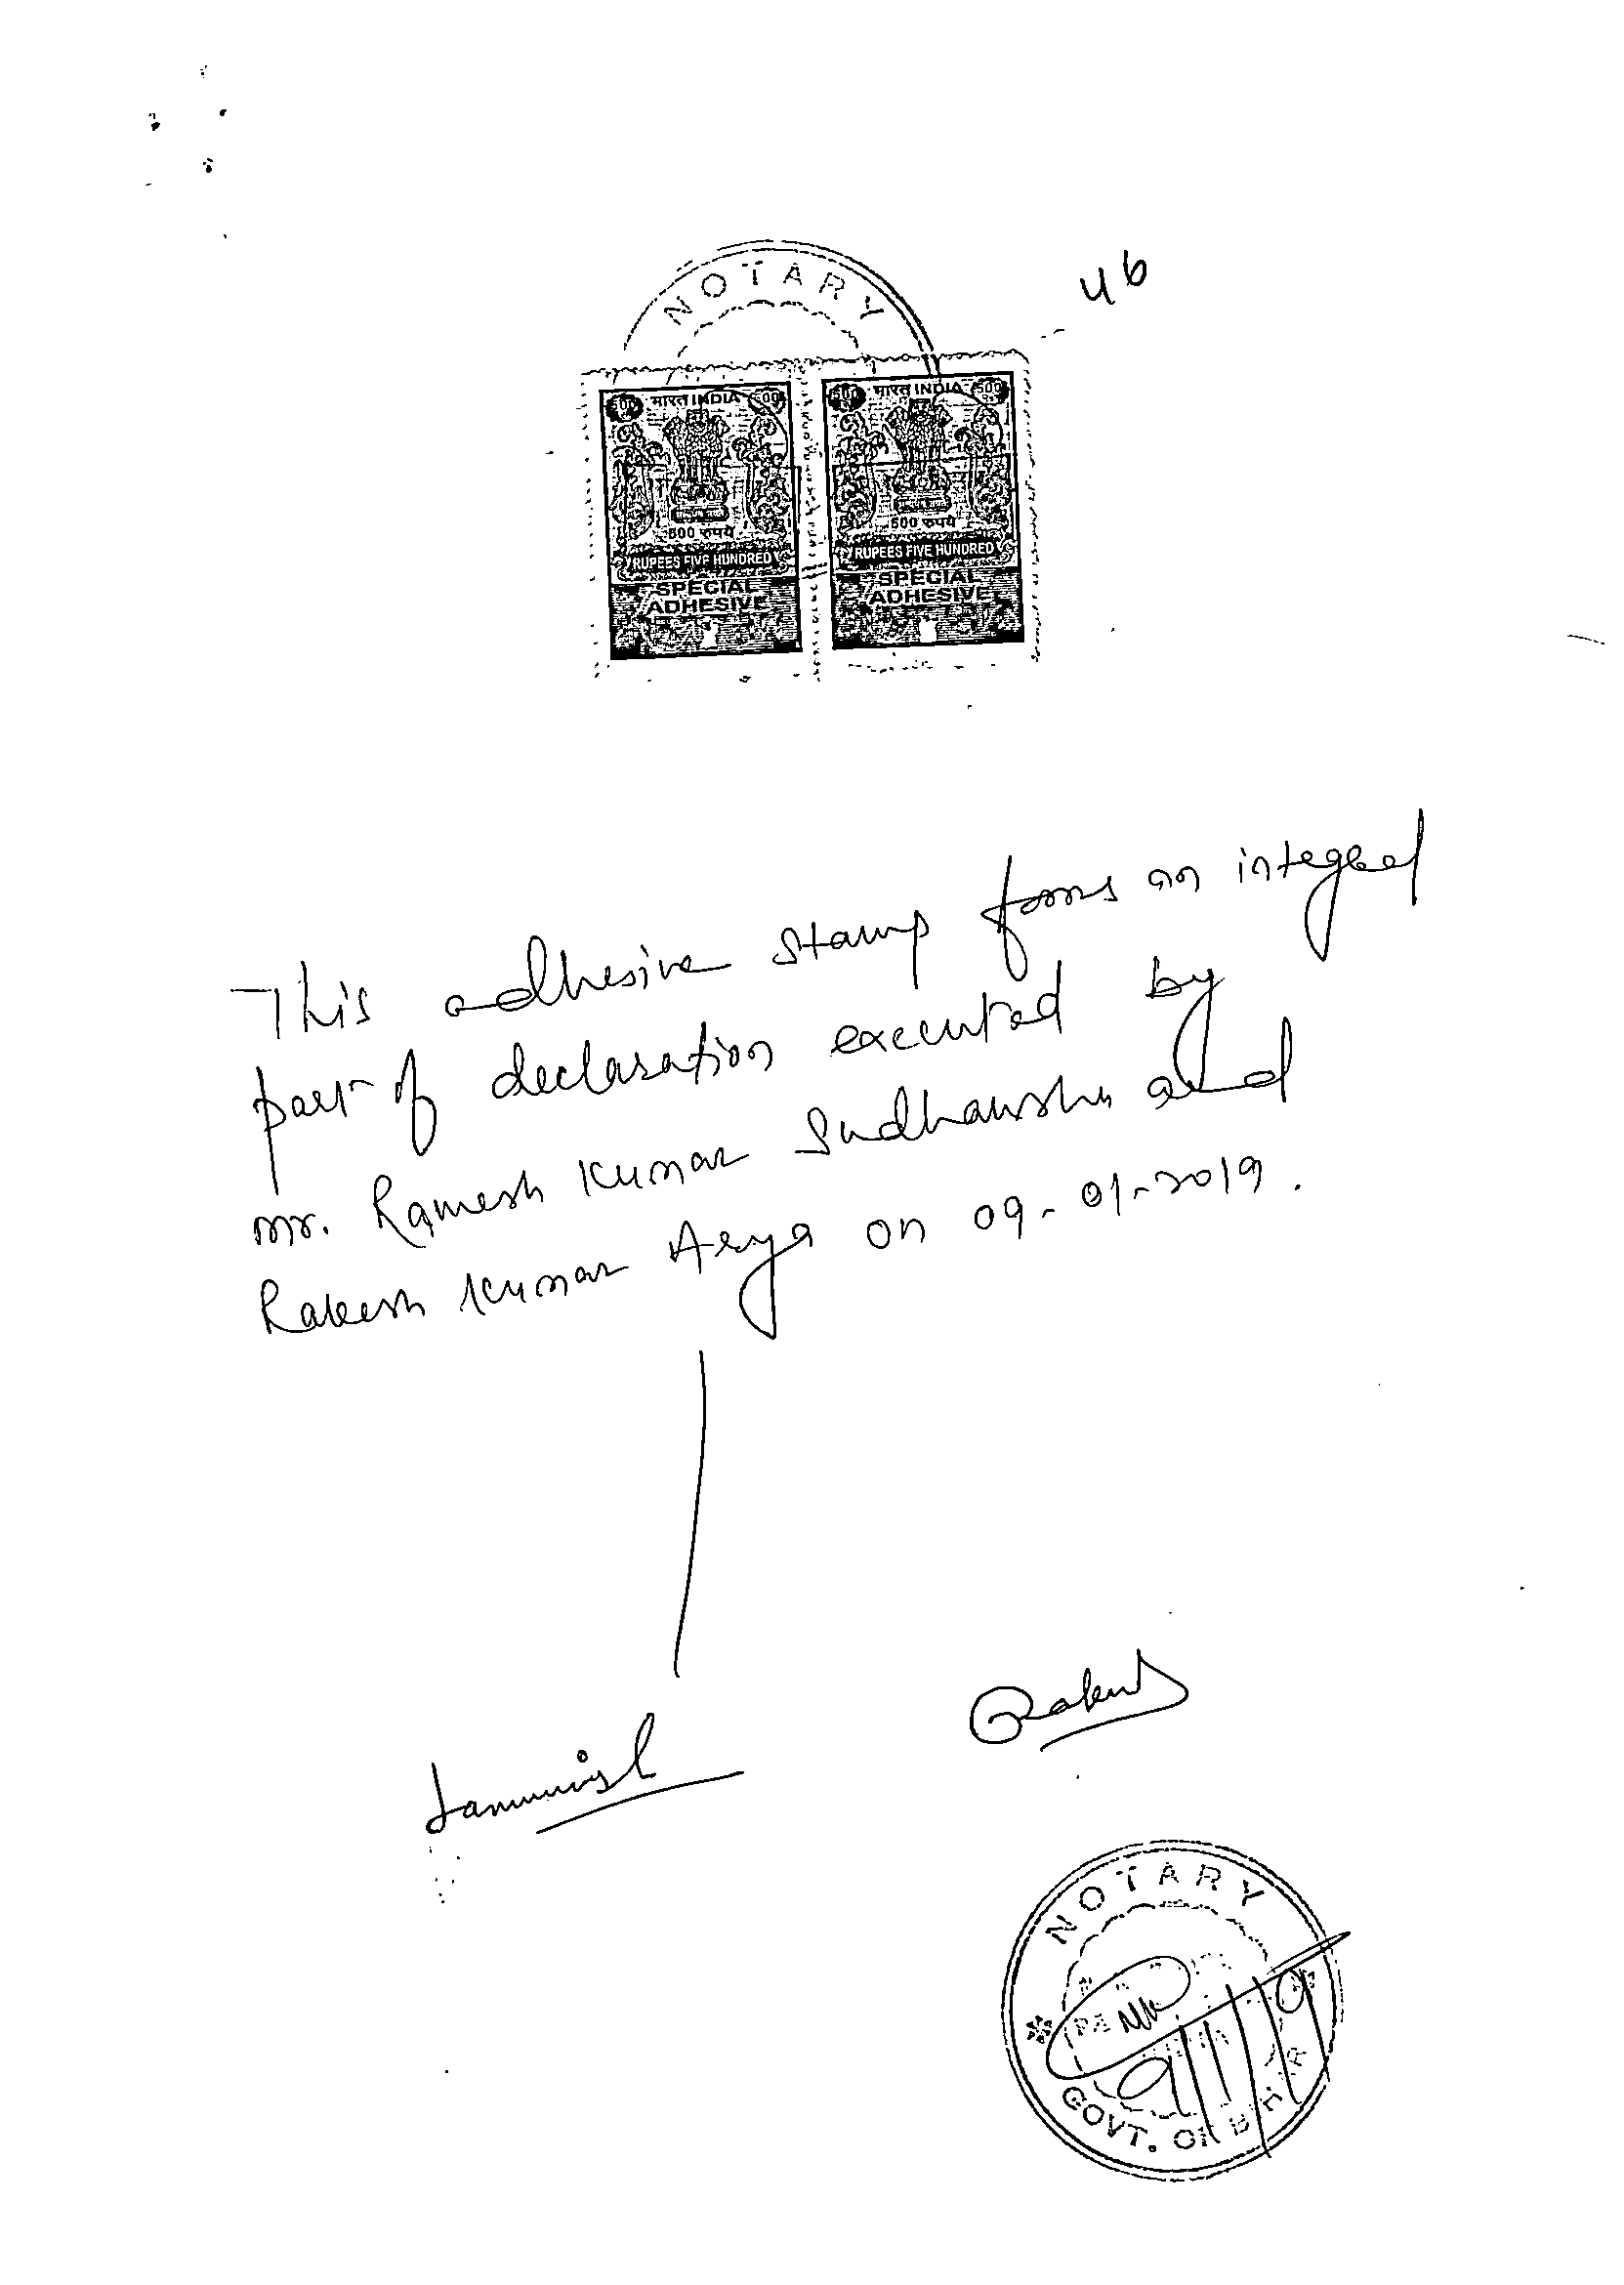 46
NOTARY
500 भारत INDIA 500
500 रुपये
RUPEES FIVE HUNDRED
SPECIAL
ADHESIVE
500 भारत INDIA 500
500 रुपये
RUPEES FIVE HUNDRED
SPECIAL
ADHESIVE
This adhesive stamp forms an integral
part of declaration executed by
Mr. Ramesh Kumar Sudhanshu and
Rakesh Kumar Arya on 09-01-2019.
Rakesh
NOTARY
GOVT. OF BIHAR